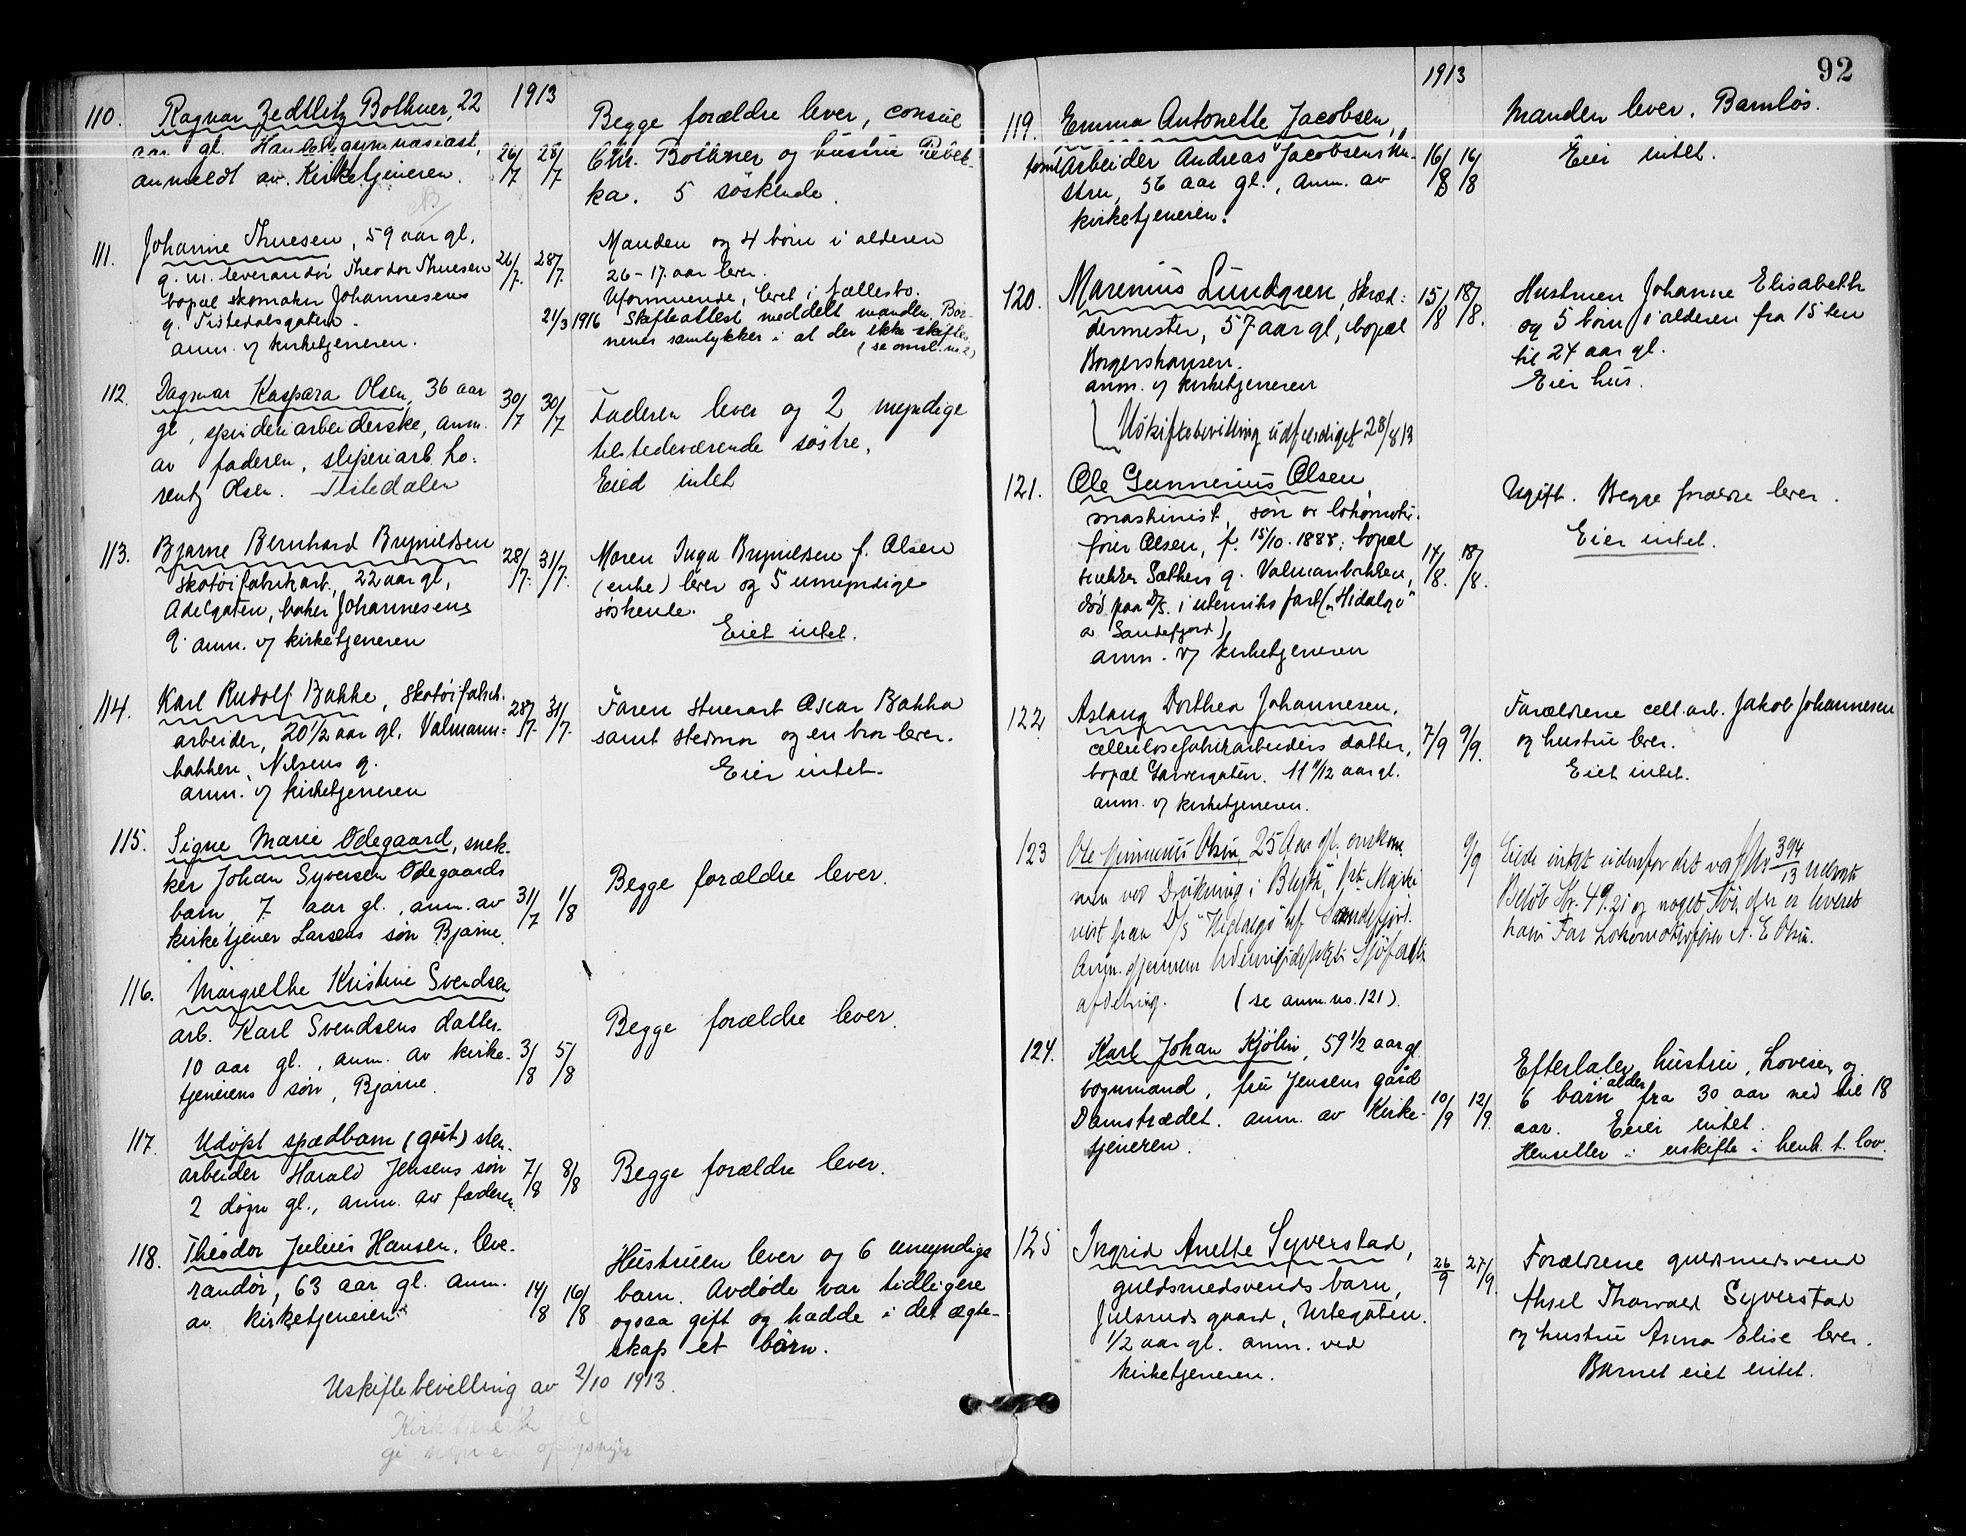 1913
110. Ragnar Zedtlitz Bothner, 22
aar gl. Handelsgymnasiast,
anmeldt av Kirketjeneren.
26/7 28/7
Begge forældre lever, consul
Chr. Bothner og hustru Rebek-
ka. 5 søskende.
111. Johanne Thuesen, 59 aar gl.
g. m. leverandør Theodor Thuesen
bopæl skomaker Johannesens
g. Tistedalsgaten.
anm. v/ kirketjeneren.
26/7. 28/7.
Manden og 4 børn i alderen
26-17 aar lever.
Uformuende, levet i fællesbo.
21/3 1916 Skifteattest meddelt manden. Bør-
nenes samtykker i at der ikke skiftes
(se omsl. nr. 2)
112. Dagmar Kaspara Olsen, 36 aar
gl, spinderiarbeiderske, anm.
av faderen, sliperiarb. Lo-
rentz Olsen. Tistedalen
30/7 30/7
Faderen lever og 2 myndige
tilstedeværende søstre.
Eied intet
113. Bjarne Bernhard Brynildsen
skotøifabrikarb., 22 aar gl,
Adelgaten, baker Johannesens
g. anm. v/ kirketjeneren
28/7. 31/7.
Moren Inga Brynildsen f. Olsen
(enke) lever og 5 umyndige
søskende.
Eiet intet.
114. Karl Rudolf Bakke, skotøifabrik-
arbeider, 20 1/2 aar gl, Valmann-
bakken, Nilsens g.
anm. v/ kirketjeneren
28/7. 31/7.
Faren stuerart Oscar Bakke
samt stedmor og en bror lever.
Eier intet.
115. Signe Marie Ødegaard, snek-
ker Johan Syversen Ødegaards
barn, 7 aar gl., anm. av
kirketjener Larsens søn Bjarne.
31/7 1/8
Begge forældre lever.
116. Margrethe Kristine Svendsen
arb. Karl Svendsens datter.
10 aar gl., anm. av kirke-
tjenerens søn, Bjarne.
3/8 5/8
Begge forældre lever.
117. Udøpt spædbarn (gut) sten-
arbeider Harald Jensens søn
2 døgn gl., anm. av faderen.
7/8 8/8
Begge forældre lever.
118. Theodor Julius Hansen, leve-
randør, 63 aar gl. anm.
av kirketjeneren
14/8 16/8
Hustruen lever og 6 umyndige
barn. Avdøde var tidligere
ogsaa gift og hadde i det ægte-
skap et børn.
Uskiftebevilling av 2/10 1913.
92
1913
119. Emma Antonette Jacobsen,
Arbeider Andreas Jacobsens hu-
stru, 56 aar gl., anm. av
kirketjeneren.
16/8 16/8
Manden lever. Barnløs.
Eier intet.
120. Marenius Lundgren, Skræd-
dermester, 57 aar gl, bopæl
Borgershausen.
anm. v/ kirketjeneren
Uskiftebevilling udfærdiget 28/8 13
15/8 18/8.
Hustruen Johanne Elisabeth
og 5 børn i alderen fra 15
til 24 aar gl.
Eier hus.
121. Ole Gunnerius Olsen,
maskinist, søn av lokomotiv-
fører Olsen, f. 15/10. 1888; bopæl
snekker Sæthers g. Valmanbakken,
død paa D/S. i utenriks fart ("Hidalgo"
a Sandefjord)
anm. v/ kirketjeneren
14/8. 18/8.
Ugift. Begge forældre lever.
Eier intet.
122 Aslaug Dorthea Johannesen,
cellulosefabrikarbeiders datter,
bopæl Garvergaten. 11 11/12 aar gl.
anm. v/ kirketjeneren.
7/9 9/9.
Forældrene cell.arb. Jakob Johannesen
og hustru lever.
Eiet intet.
123 Ole Gunnerius Olsen 25 Aar gl, omkom
men ved Drukning i Blyth, fra Maski
nist paa D/S "Hidalgo" af Sandefjord.
Anm. gjennem Utenrigsdepts Sjøfarts
afdeling. (se anm. no. 121).
9/9
Eiede intet udenfor det ved 394/13 nævnte
Beløb Kr. 49.21 og noget Tøi, der er leveret
hans Far Lokomotivfører A. E. Olsen.
124. Karl Johan Kjølin, 59 1/2 aar gl
vognmand, fru Jensens gård
Damstrædet. anm. av Kirke-
tjeneren.
10/9 12/9.
Efterlater hustru, Lovise, og
6 børn i alder fra 30 aar ned til 18
aar. Eier intet.
Henseller i uskifte i henh. t. lov.
125 Ingrid Anette Syverstad,
guldsmedsvends barn,
Julsruds gaard, Urtegaten.
1/2 aar gl. anm. ved
kirketjeneren.
26/9 27/9.
Forældrene guldsmedsvend
Aksel Thorvald Syverstad
og hustru Anna Elise lever.
Barnet eiet intet.